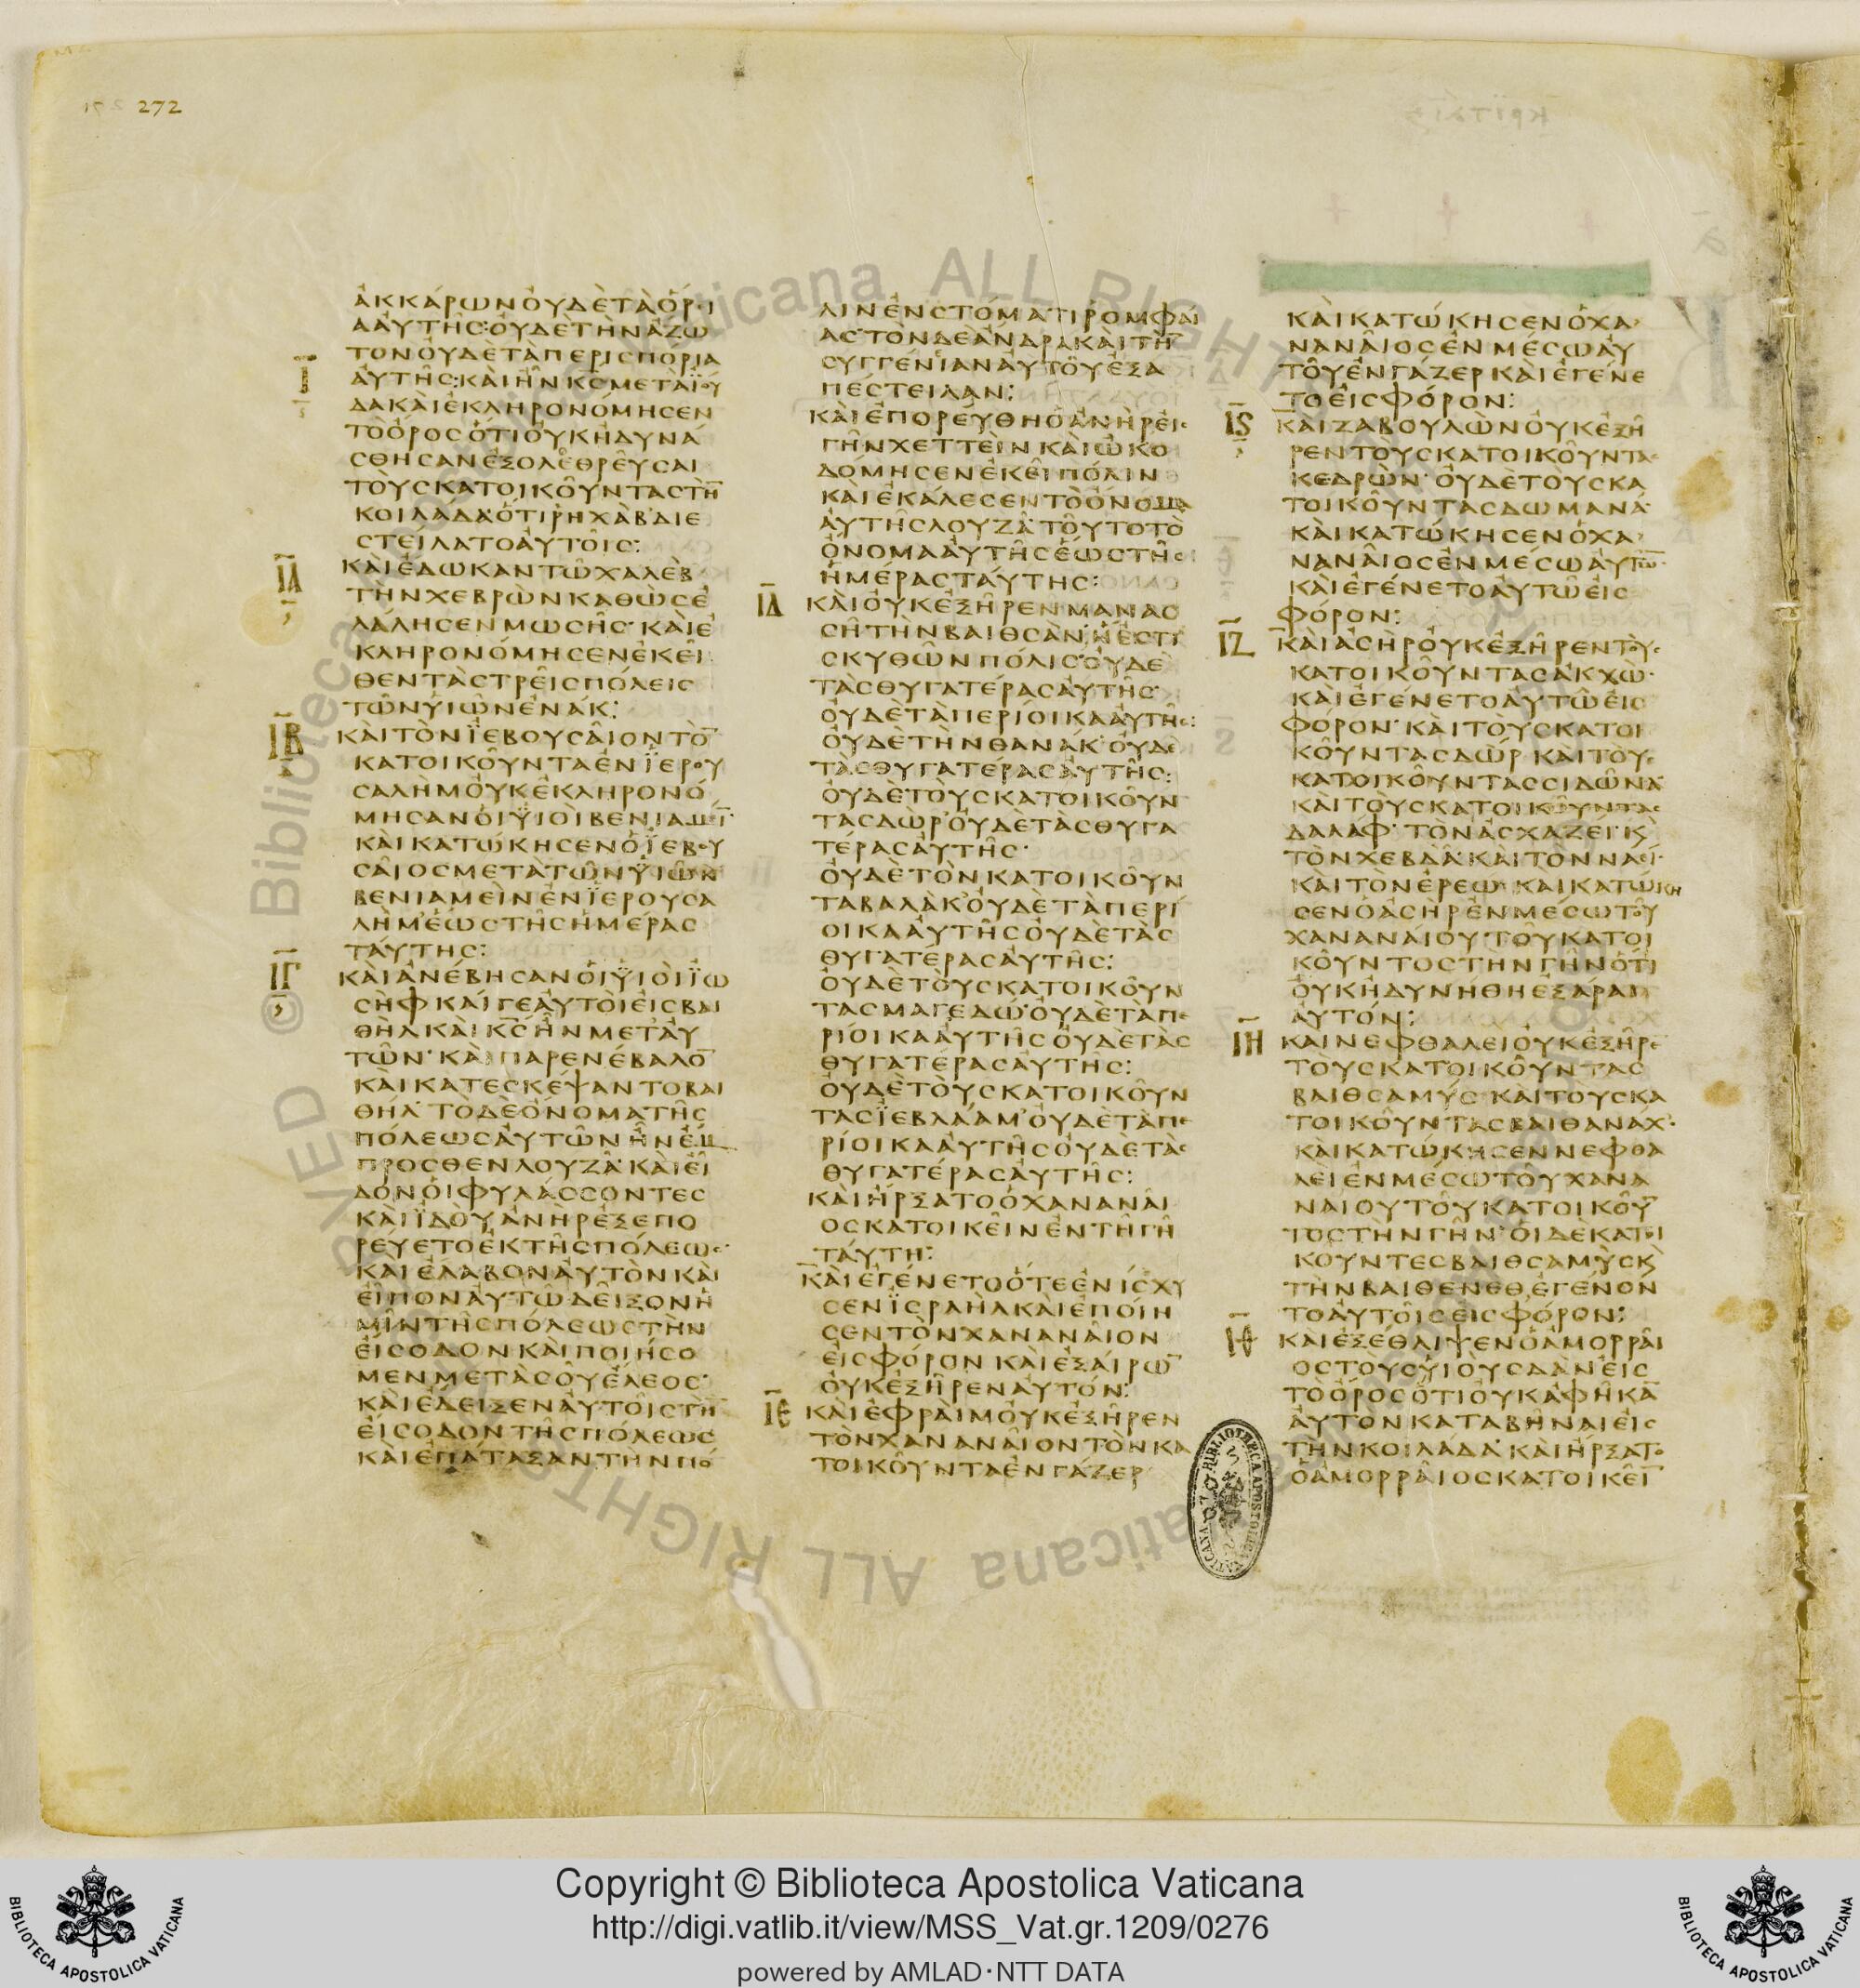 272
ἀκκάρων οὐδὲ τὰ ὅρι
α αὐτῆς· οὐδὲ τὴν ἄζω
τον οὐδὲ τὰ περισπόρια
Ι̅
αὐτῆς: καὶ ἦν κ̅ς̅ μετὰ ϊού
δα καὶ ἐκληρονόμησεν
τὸ ὄρος ὅτι οὐκ ἠδυνά
σθησαν ἐξολεθρεῦσαι
τοὺς κατοικοῦντας τὴ̅
κοιλάδα· ὅτι ρηχὰβ διε
στείλατο αὐτοῖς:
ΙΑ̅
καὶ ἔδωκαν τῷ χαλὲβ
τὴν χεβρὼν καθὼς ἐ
λάλησεν μωσῆς· καὶ ἐ
κληρονόμησεν ἐκεῖ
θεν τὰς τρεῖς πόλεις
τῶν υἱῶν ἐνάκ:
ΙΒ̅
καὶ τὸν ϊεβουσαῖον τὸ̅
κατοικοῦντα ἐν ϊερου
σαλὴμ οὐκ ἐκληρονό
μησαν οἱ ϋιοὶ βενιαμεί̅
καὶ κατῴκησεν ὁ ϊεβου
σαῖος μετὰ τῶν ϋιῶν
βενιαμεὶν ἐν ϊερουσα
λὴμ ἕως τῆς ἡμέρας
ταύτης:
ΙΓ̅
καὶ ἀνέβησαν οἱ ϋιοὶ ϊω
σὴφ καί γε αὐτοὶ εἰς βαι
θὴλ καὶ κ̅ς̅ ἦν μετ' αὐ
τῶν· καὶ παρενέβαλο̅
καὶ κατεσκέψαντο βαι
θήλ· τὸ δὲ ὄνομα τῆς
πόλεως αὐτῶν ἦν ἔμ
προσθεν λουζά· καὶ εἶ
δον οἱ φυλάσσοντες
καὶ ϊδοὺ ἀνὴρ ἐξεπο
ρεύετο ἐκ τῆς πόλεως·
καὶ ἔλαβον αὐτὸν καὶ
εἶπον αὐτῷ δεῖξον ἡ
μῖν τῆς πόλεως τὴν
εἴσοδον καὶ ποιήσο
μεν μετὰ σοῦ ἔλεος·
καὶ ἔδειξεν αὐτοῖς τὴ̅
εἴσοδον τῆς πόλεως
καὶ ἐπάταξαν τὴν πό
λιν ἐν στόματι ρομφαί
ας· τὸν δὲ ἄνδρα καὶ τὴ̅
συγγένιαν αὐτοῦ ἐξα
πέστειλαν:
καὶ ἐπορεύθη ὁ ἀνὴρ εἰς
γῆν χεττεὶν καὶ ᾠκο
δόμησεν ἐκεῖ πόλιν
καὶ ἐκάλεσεν τὸ ὄνομα
αὐτῆς λουζά· τοῦτο τὸ
ὄνομα αὐτῆς ἕως τῆς
ἡμέρας ταύτης:
ΙΔ̅
καὶ οὐκ ἐξῆρεν μανας
σῆ τὴν βαιθσάν· ἥ ἐστι
σκυθῶν πόλις· οὐδὲ
τὰς θυγατέρας αὐτῆς·
οὐδὲ τὰ περίοικα αὐτῆς:
οὐδὲ τὴν θανάκ· οὐδὲ
τὰς θυγατέρας αὐτῆς:
οὐδὲ τοὺς κατοικοῦν
τας δώρ· οὐδὲ τὰς θυγα
τέρας αὐτῆς·
οὐδὲ τὸν κατοικοῦν
τα βαλάκ· οὐδὲ τὰ περί
οικα αὐτῆς οὐδὲ τὰς
θυγατέρας αὐτῆς:
οὐδὲ τοὺς κατοικοῦν
τας μαγεδώ· οὐδὲ τὰ πε
ρίοικα αὐτῆς οὐδὲ τὰς
θυγατέρας αὐτῆς:
οὐδὲ τοὺς κατοικοῦν
τας ϊεβλαάμ· οὐδὲ τὰ πε
ρίοικα αὐτῆς οὐδὲ τὰς
θυγατέρας αὐτῆς:
καὶ ἤρξατο ὁ χαναναῖ
ος κατοικεῖν ἐν τῇ γῇ
ταύτῃ:
καὶ ἐγένετο ὅτε ἐνίσχυ
σεν ϊσραὴλ καὶ ἐποίη
σεν τὸν χαναναῖον
εἰς φόρον καὶ ἐξαίρω̅
οὐκ ἐξῆρεν αὐτόν:
ΙΕ̅
καὶ ἐφραὶμ οὐκ ἐξῆρεν
τὸν χαναναῖον τὸν κα
τοικοῦντα ἐν γάζερ
καὶ κατῴκησεν ὁ χα
ναναῖος ἐν μέσῳ αὐ
τοῦ ἐν γάζερ καὶ ἐγένε
το εἰς φόρον:
Ις̅
καὶ ζαβουλὼν οὐκ ἐξῆ
ρεν τοὺς κατοικοῦντας
κεδρών· οὐδὲ τοὺς κα
τοικοῦντας δωμανά·
καὶ κατῴκησεν ὁ χα
ναναῖος ἐν μέσῳ αὐτῶ̅
καὶ ἐγένετο αὐτῷ εἰς
φόρον:
ΙΖ̅
καὶ ἀσὴρ οὐκ ἐξῆρεν τοὺς
κατοικοῦντας ἀκχώ·
καὶ ἐγένετο αὐτῷ εἰς
φόρον· καὶ τοὺς κατοι
κοῦντας δώρ καὶ τοὺς
κατοικοῦντας σιδῶνα·
καὶ τοὺς κατοικοῦντας
δαλάφ· τὸν ἀσχαζεί· κ̀
τὸν χεβδά· καὶ τὸν ναεί·
καὶ τὸν ἐρεώ· καὶ κατῴκη
σεν ὁ ἀσὴρ ἐν μέσῳ τοῦ
χαναναίου τοῦ κατοι
κοῦντος τὴν γῆν ὅτι
οὐκ ἠδυνήθη ἐξᾶραι
αὐτόν:
ΙΗ̅
καὶ νεφθαλεὶ οὐκ ἐξῆρε
τοὺς κατοικοῦντας
βαιθσαμύς· καὶ τοὺς κα
τοικοῦντας βαιθανάχ·
καὶ κατῴκησεν νεφθα
λεὶ ἐν μέσῳ τοῦ χανα
ναίου τοῦ κατοικοῦ̅
τος τὴν γῆν· οἱ δὲ κατοι
κοῦντες βαιθσαμὺς κ̀
τὴν βαιθενὲθ ἐγένον
το αὐτοῖς εἰς φόρον:
ΙΘ̅
καὶ ἐξέθλιψεν ὁ ἀμορραῖ
ος τοὺς υἱοὺς δὰν εἰς
τὸ ὄρος ὅτι οὐκ ἀφῆκα̅
αὐτὸν καταβῆναι εἰς
τὴν κοιλάδα· καὶ ἤρξατο
ὁ ἀμορραῖος κατοικεῖ̅
Copyright © Biblioteca Apostolica Vaticana
http://digi.vatlib.it/view/MSS_Vat.gr.1209/0276
powered by AMLAD·NTT DATA
BIBLIOTECA APOSTOLICA VATICANA
BIBLIOTECA APOSTOLICA VATICANA